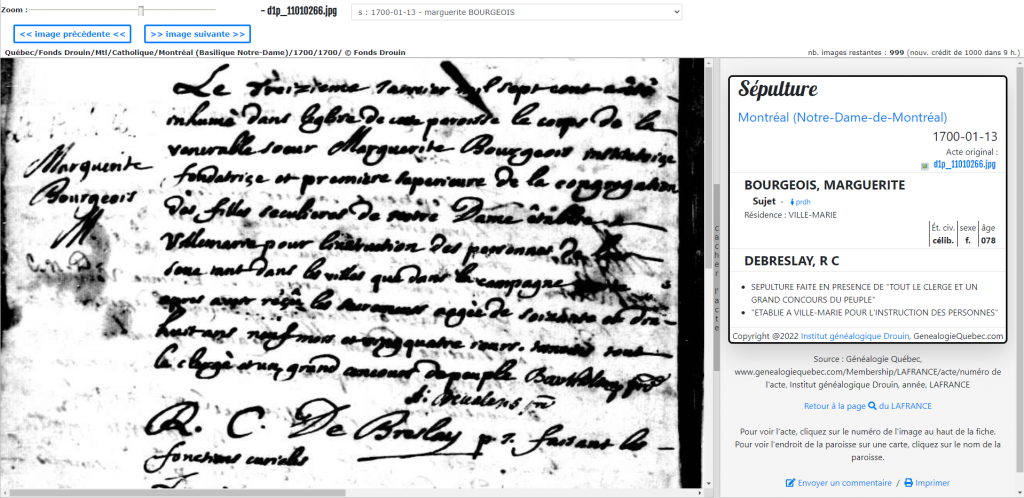 Zoom :
– d1p_11010266.jpg
s : 1700-01-13 - marguerite BOURGEOIS
<< image précédente <<
>> image suivante >>
Québec/Fonds Drouin/Mtl/Catholique/Montréal (Basilique Notre-Dame)/1700/1700/ © Fonds Drouin
nb. images restantes : 999 (nouv. crédit de 1000 dans 9 h.)
Marguerite
Bourgeois
Le treizieme Janvier mil sept cent a été
inhumé dans l'eglise de cette paroisse le corps de la
venerable soeur Marguerite Bourgeois institutrice
fondatrice et premiere superieure de la congregation
des filles seculieres de notre Dame établie
Villemarie pour l'instruction des personnes de leur
sexe tant dans les villes que dans la campagne
apres avoir reçu les sacremens agée de soixante et dix
huit ans neuf mois et vingt quatre jours
le clergé et un grand concours du peuple
R. C. De Breslay p. s. faisant les
fonctions curiales
cacher l'acte
Sépulture
Montréal (Notre-Dame-de-Montréal)
1700-01-13
Acte original :
d1p_11010266.jpg
BOURGEOIS, MARGUERITE
Sujet - prdh
Résidence : VILLE-MARIE
Ét. civ. sexe âge
célib. f. 078
DEBRESLAY, R C
• SEPULTURE FAITE EN PRESENCE DE "TOUT LE CLERGE ET UN
GRAND CONCOURS DU PEUPLE"
• "ETABLIE A VILLE-MARIE POUR L'INSTRUCTION DES PERSONNES"
Copyright @2022 Institut généalogique Drouin, GenealogieQuebec.com
Source : Généalogie Québec,
www.genealogiequebec.com/Membership/LAFRANCE/acte/numéro de
l'acte, Institut généalogique Drouin, année, LAFRANCE
Retour à la page du LAFRANCE
Pour voir l'acte, cliquez sur le numéro de l'image au haut de la fiche.
Pour voir l'endroit de la paroisse sur une carte, cliquez sur le nom de la
paroisse.
Envoyer un commentaire / Imprimer